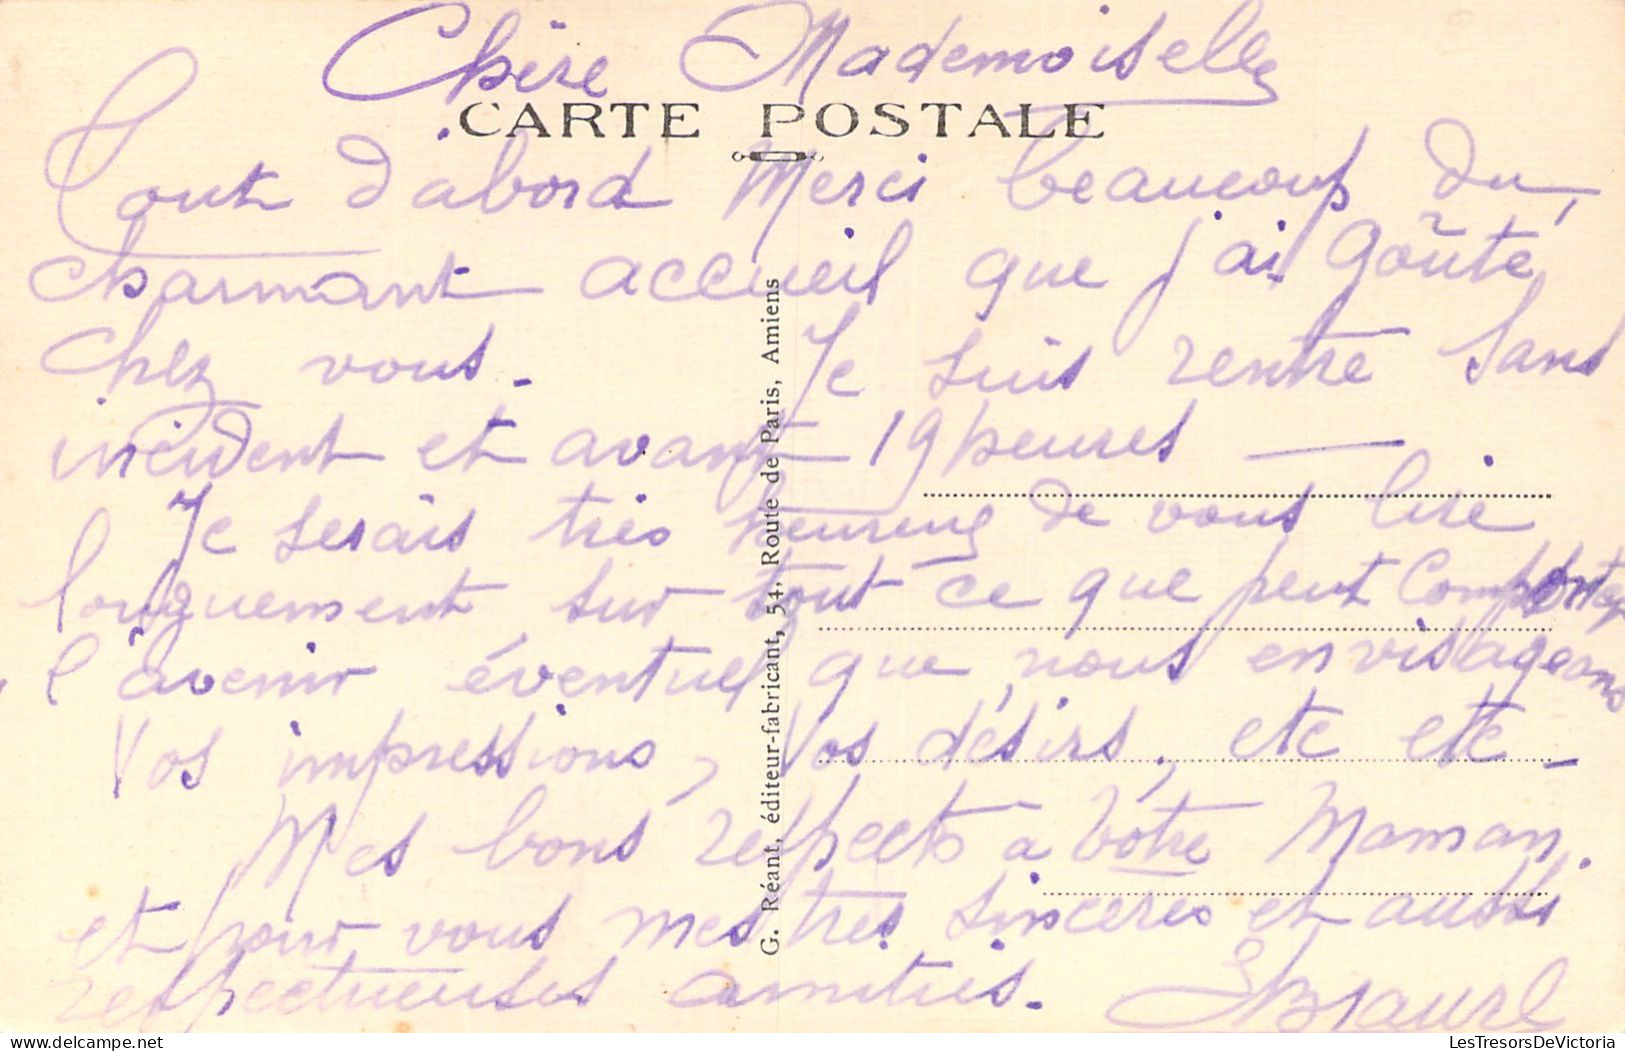 Chère Mademoiselle
CARTE POSTALE
Tout d'abord Merci beaucoup du
charmant accueil que j'ai goûté
chez vous. Je suis rentré sans
incident et avant 19 heures —
Je serais très heureux de vous lire
longuement sur tout ce que peut comporter
l'avenir éventuel que nous envisageons
Vos impressions, Vos désirs, etc etc –
Mes bons respects à Votre Maman,
et pour vous mes très sincères et aussi
respectueuses amitiés.
G. Réant, éditeur-fabricant, 54, Route de Paris, Amiens
LesTresorsDeVictoria